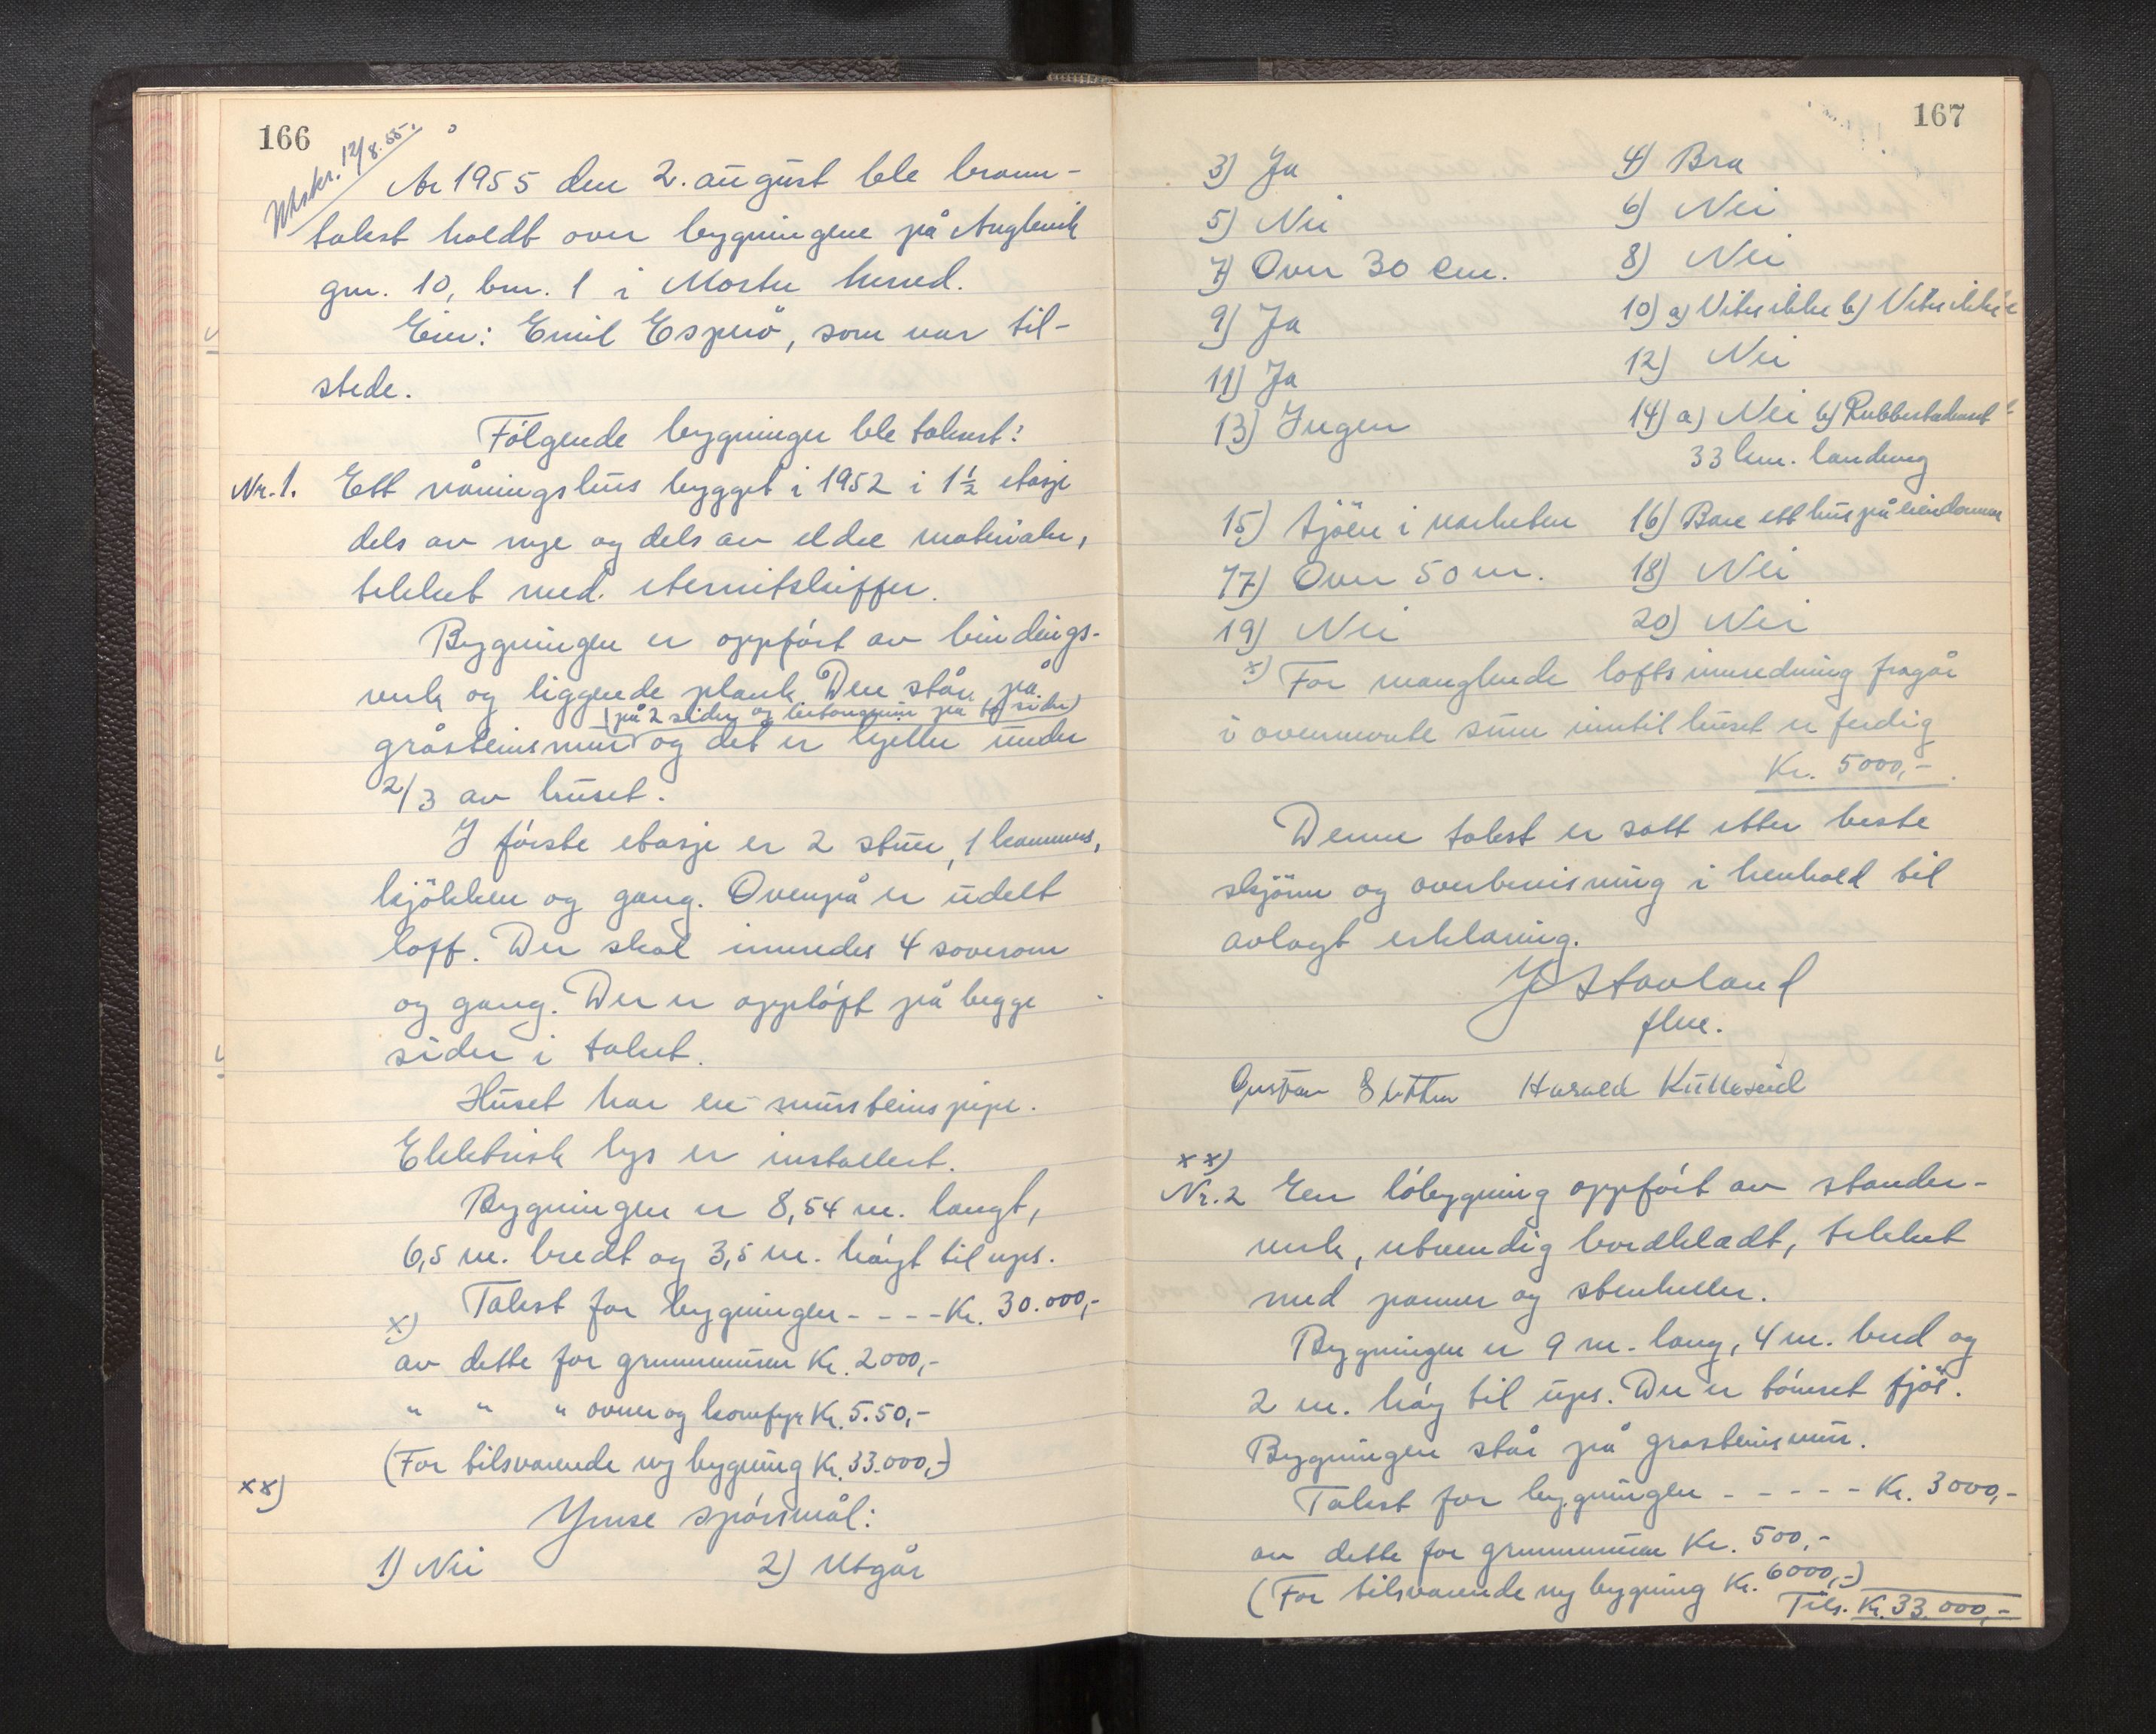 166
Utskr. 12/8.55.
År 1955 den 2. august ble brann-
takst holdt over bygningene på Anglevik
gnr. 10, bnr. 1 i Moster herred.
Eier: Emil Esperö, som var til-
stede.
Fölgende bygninger ble takset:
Nr. 1. Ett våningshus bygget i 1952 i 1½ etasje
dels av nye og dels av eldre materialer,
tekket med eternitskiffer.
Bygningen er oppfört av bindings-
verk og liggende plank. Den står på
(på 2 sider og betongmur på to sider)
gråsteinsmur og det er kjeller under
2/3 av huset.
I förste etasje er 2 stuer, 1 kammers,
kjökken og gang. Ovenpå er udelt
loft. Der skal innredes 4 soverom
og gang. Der er opplöft på begge
sider i taket.
Huset har en mursteinspipe.
Elektrisk lys er installert.
Bygningen er 8,54 m. langt,
6,5 m. bredt og 3,5 m. höyt til ups.
x) Takst for bygningen - - - - Kr. 30.000,-
av dette for grunnmuren Kr. 2000,-
" " " ovner og komfyr Kr. 5.50,-
(For tilsvarende ny bygning Kr. 33.000,-)
xx)
Ymse spörsmål:
1) Nei 2) Utgår
167
3) Ja 4) Bra
5) Nei 6) Nei
7) Over 30 cm. 8) Nei
9) Ja 10) a) Vites ikke b) Vites ikke
11) Ja 12) Nei
13) Ingen 14) a) Nei b) Rubbestadneset
33 km. landveg
15) Sjöen i nærheten 16) Bare ett hus på eiendommen
17) Over 50 m. 18) Nei
19) Nei 20) Nei
x) For manglende loftsinnredning fragår
i ovennevnte sum inntil huset er ferdig
Kr. 5000,-
Denne takst er satt etter beste
skjönn og overbevisning i henhold til
avlagt erklæring.
Stavland
flm.
Gustav Harald Kulleseid
xx)
Nr. 2 Een löbygning oppfört av stender-
verk, utvendig bordkledt, tekket
med panner og stenheller.
Bygningen er 9 m. lang, 4 m. bred og
2 m. höy til ups. Der er tömret fjös.
Bygningen står på gråsteinsmur.
Takst for bygningen - - - - - Kr. 3000,-
av dette for grunnmuren Kr. 500,-
(For tilsvarende ny bygning Kr. 6000,-)
Tils. Kr. 33.000,-